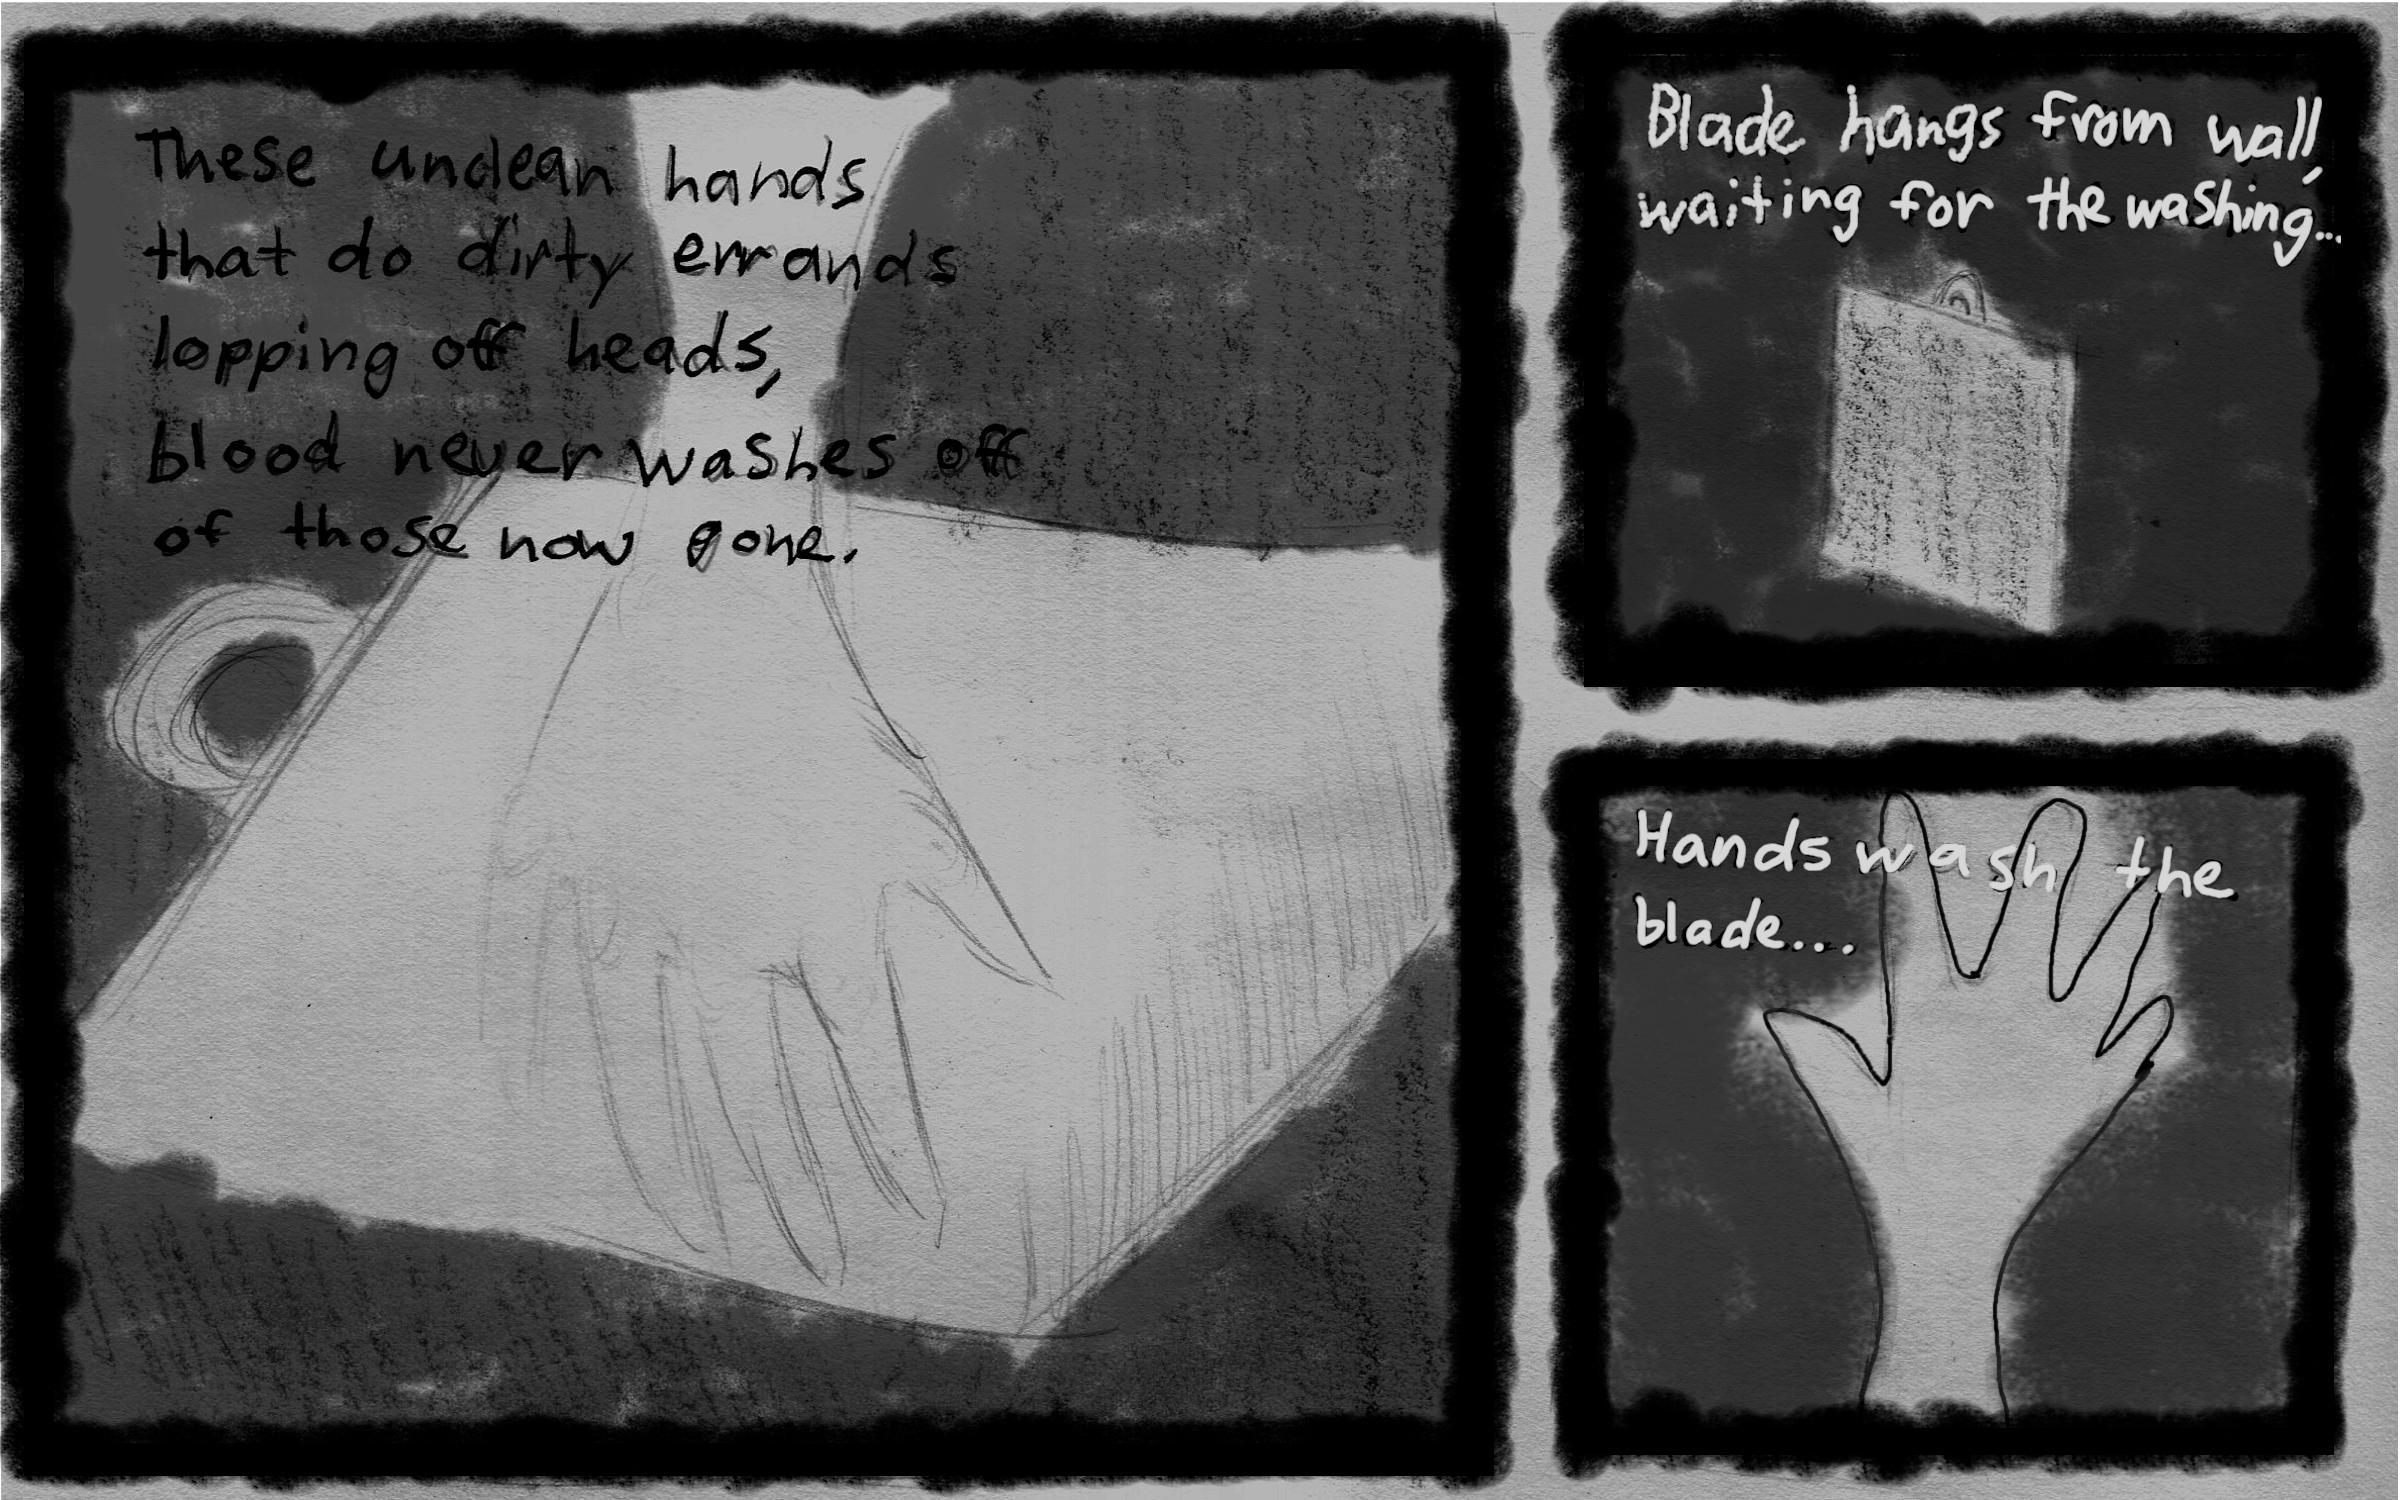 These unclean hands
that do dirty errands
lopping off heads,
blood never washes off
of those now gone.
Blade hangs from wall,
waiting for the washing...
Hands wash the
blade....